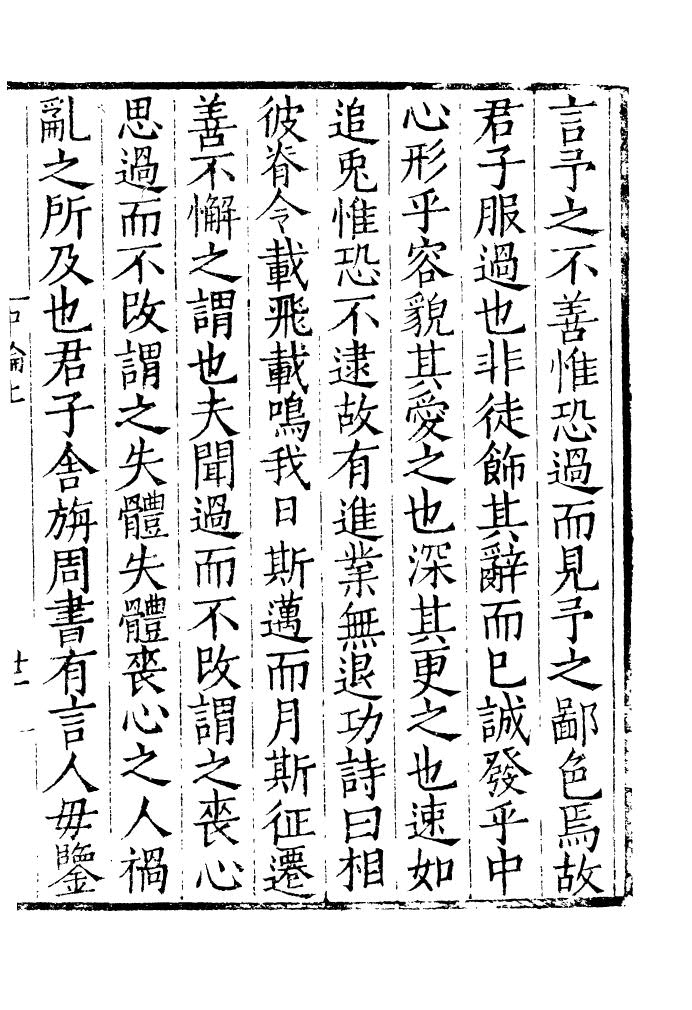 言予之不善惟恐過而見予之鄙色焉故
君子服過也非徒飾其辭而已誠發乎中
心形乎容貌其愛之也深其更之也速如
追兎惟恐不逮故有進業無退功詩曰相
彼脊令載飛載鳴我日斯邁而月斯征遷
善不懈之謂也夫聞過而不改謂之喪心
思過而不改謂之失體失體喪心之人禍
亂之所及也君子舍旃周書有言人毋鑒
中論上
十二